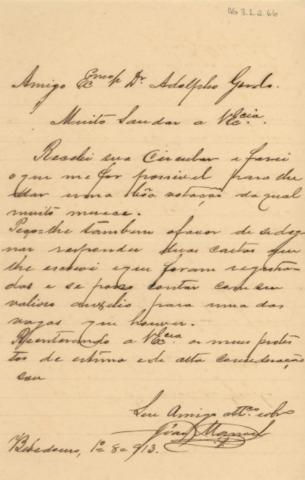 AG 3.1.2.66
Amigo Exmo Dr. Adolpho Gordo.
Muito Saudar a VExcia.
Recebi sua Circular e farei
o que me for possivel para lhe
dar uma bôa votação da qual
muito merece.
Peço-lhe tambem o favor de se dig
nar responder duas cartas que
lhe escrevi e que foram registra
das e se posso contar com seu
valioso auxilio para uma das
vagas que houver.
a VExcia os meus protes
tos de estima e de alta consideração
sou
Seu Amigo Mto. e obro.
João
Bebedouro, 1º 8 913.